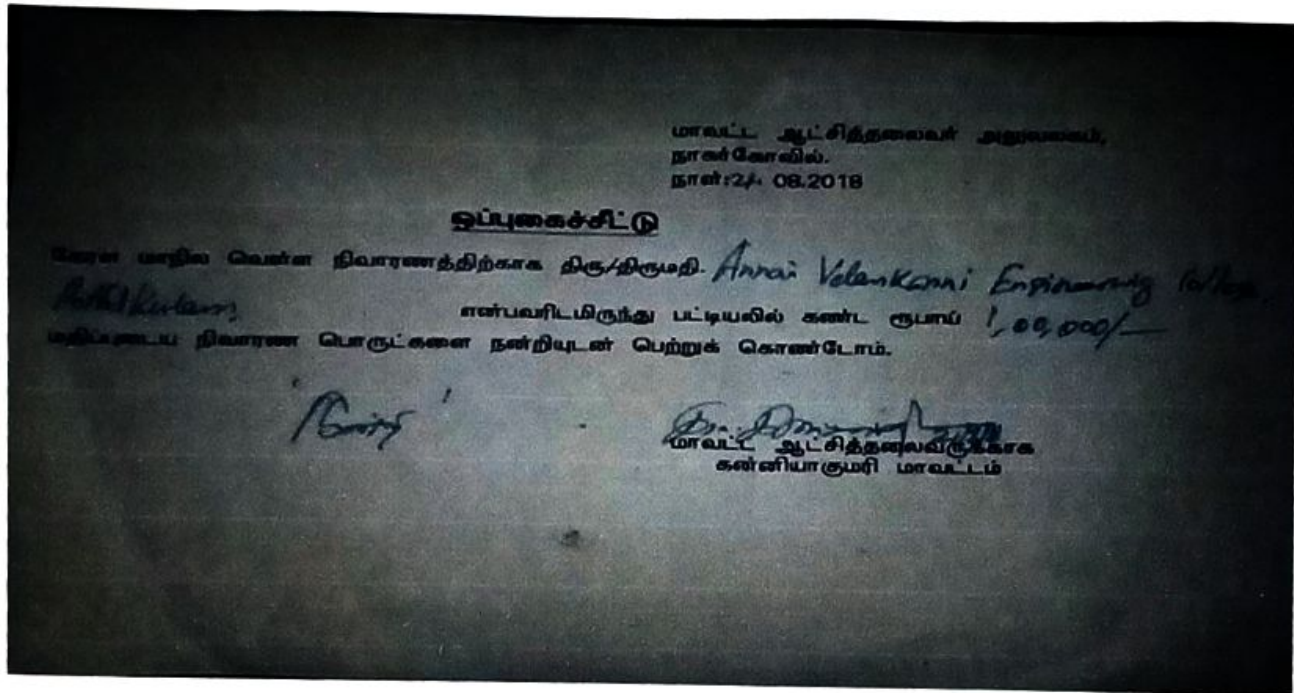 மாவட்ட ஆட்சித்தலைவர் அலுவலகம்,
நாகர்கோவில்.
நாள்:24. 08.2018
ஒப்புகைச்சீட்டு
கேரள மாநில வெள்ள நிவாரணத்திற்காக திரு/திருமதி. Annai Velankanni Engineering College,
Pothikulam, என்பவரிடமிருந்து பட்டியலில் கண்ட ரூபாய் 1,00,000/-
மதிப்புடைய நிவாரண பொருட்களை நன்றியுடன் பெற்றுக் கொண்டோம்.
மாவட்ட ஆட்சித்தலைவருக்காக
கன்னியாகுமரி மாவட்டம்